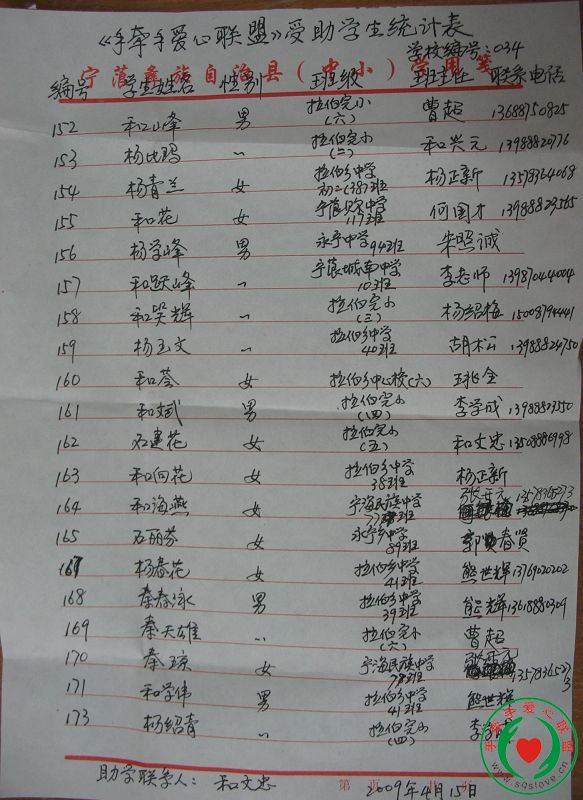 《手牵手爱心联盟》受助学生统计表
学校编号:034
宁蒗彝族自治县(中小)学用笺
编号 学生姓名 性别 班级 班主任 联系电话
152 和山峰 男 拉伯完小(六) 曹超 13688750825
153 杨比玛 〃 拉伯完小(二) 和兴元 13988820776
154 杨青兰 女 拉伯乡中学初二(38)班 杨正新 13578364068
155 和花 女 宁蒗贝尔中学117班 何国才 13988823565
156 杨学峰 男 永宁中学94班 朱照诚
157 和跃峰 〃 宁蒗城南中学10班 李老师 13987044004
158 和吴辉 〃 拉伯完小(三) 杨绍梅 15008794441
159 杨玉文 〃 拉伯乡中学40班 胡松 13988824750
160 和苓 女 拉伯乡中心校(六) 全
161 和斌 男 拉伯完小(四) 李学成 13988823350
162 石建花 女 拉伯完小(五) 和文忠 13508886998
163 和向花 女 拉伯乡中学38班 杨正新
164 和海燕 女 宁海民族中学 张开元
165 石丽芬 女 永宁乡中学89班 郭春贤
167 杨春花 女 拉伯乡中学41班 熊世辉 13769020202
168 秦春泳 男 拉伯乡中学39班 熊辉 13618880304
169 秦天雄 〃 拉伯完小(六) 曹超
170 秦琼 女 宁海民族中学78班
171 和学伟 男 拉伯乡中学41班 熊世辉
173 杨绍青 〃 拉伯完小(四) 李学成
助学联学人: 和文忠 2009年4月15日
第 页 共 页
手牵手爱心联盟
www.sqslove.cn